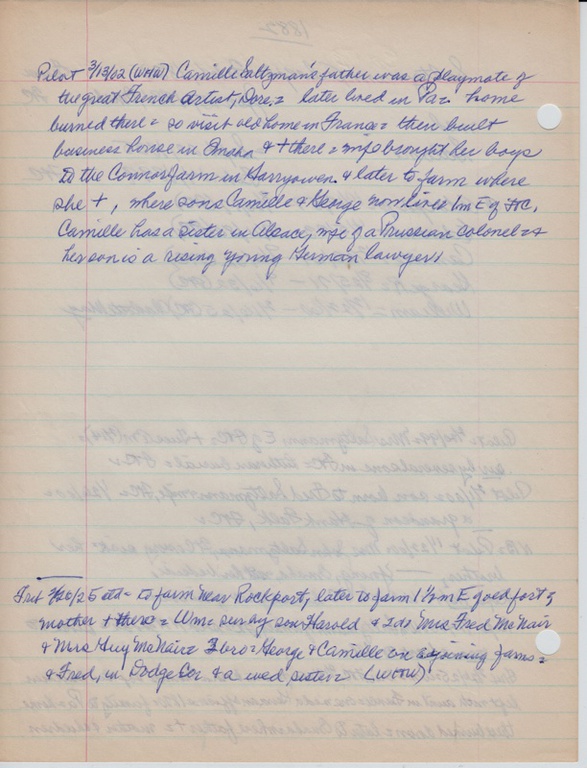 1882
Pilot 3/13/02 (WHW) Camille Saltzman's father was a playmate of
the great French Artist, Dore, = later lived in Pa = home
burned there = so visit old home in France = then built
business horse in Omaha & + there = brought her boys
to the Connor farm in Harryowen & later to farm where
she +, where sons Camille & George now live 1m E of
Camille has a sister in Alsace, wife of a Prussian Colonel = &
her son is a rising young German lawyer.
3/20/25 = to farm near Rockport, later to farm 1 1/2 m E good fort of
mother + there = Wm sur by son Harold & 2 ds Mrs Fred McNair
& Mrs Guy McNair = 3 bro = George & Camille on ajoining farms =
& Fred, in Dodge Co & a wed, sister = (WHW)